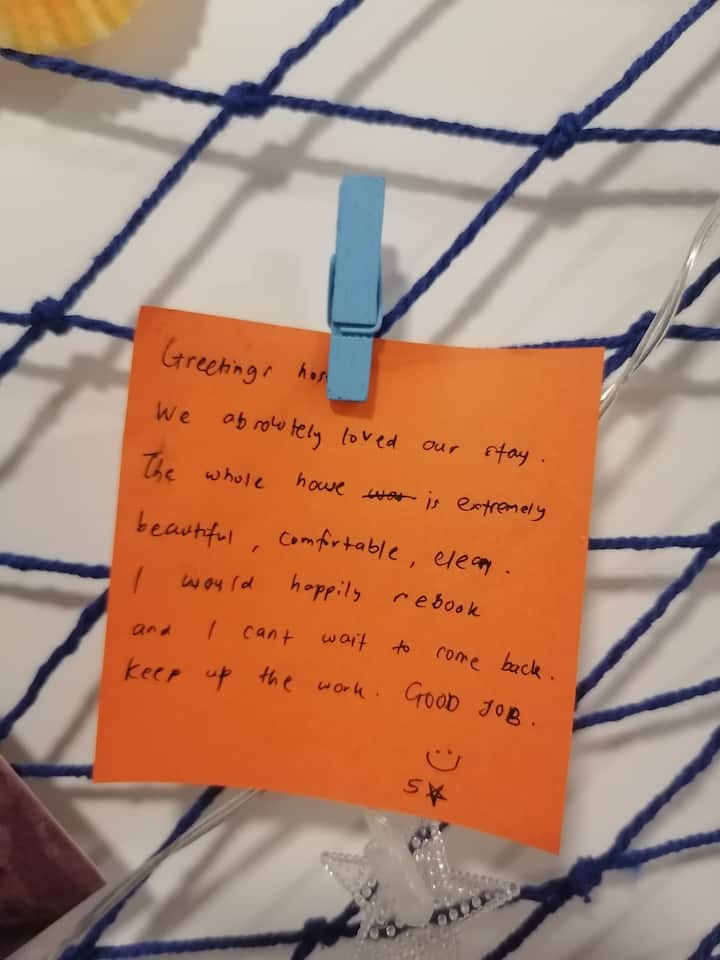 Greetings hos
We absolutely loved our stay.
The whole house was is extremely
beautiful, comfortable, clean.
I would happily rebook
and I cant wait to come back.
Keep up the work. GOOD JOB.
5